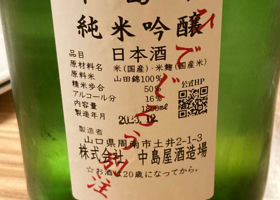 純米吟醸
品目 日本酒
原材料名 米(国産)・米麹(国産米)
原料米 山田錦100%
精米歩合 50%
アルコール分 16%
内容量
製造年月
公式HP
製造者
山口県周南市土井2-1-3
株式会社 中島屋酒造場
☆お酒は20歳になってから。